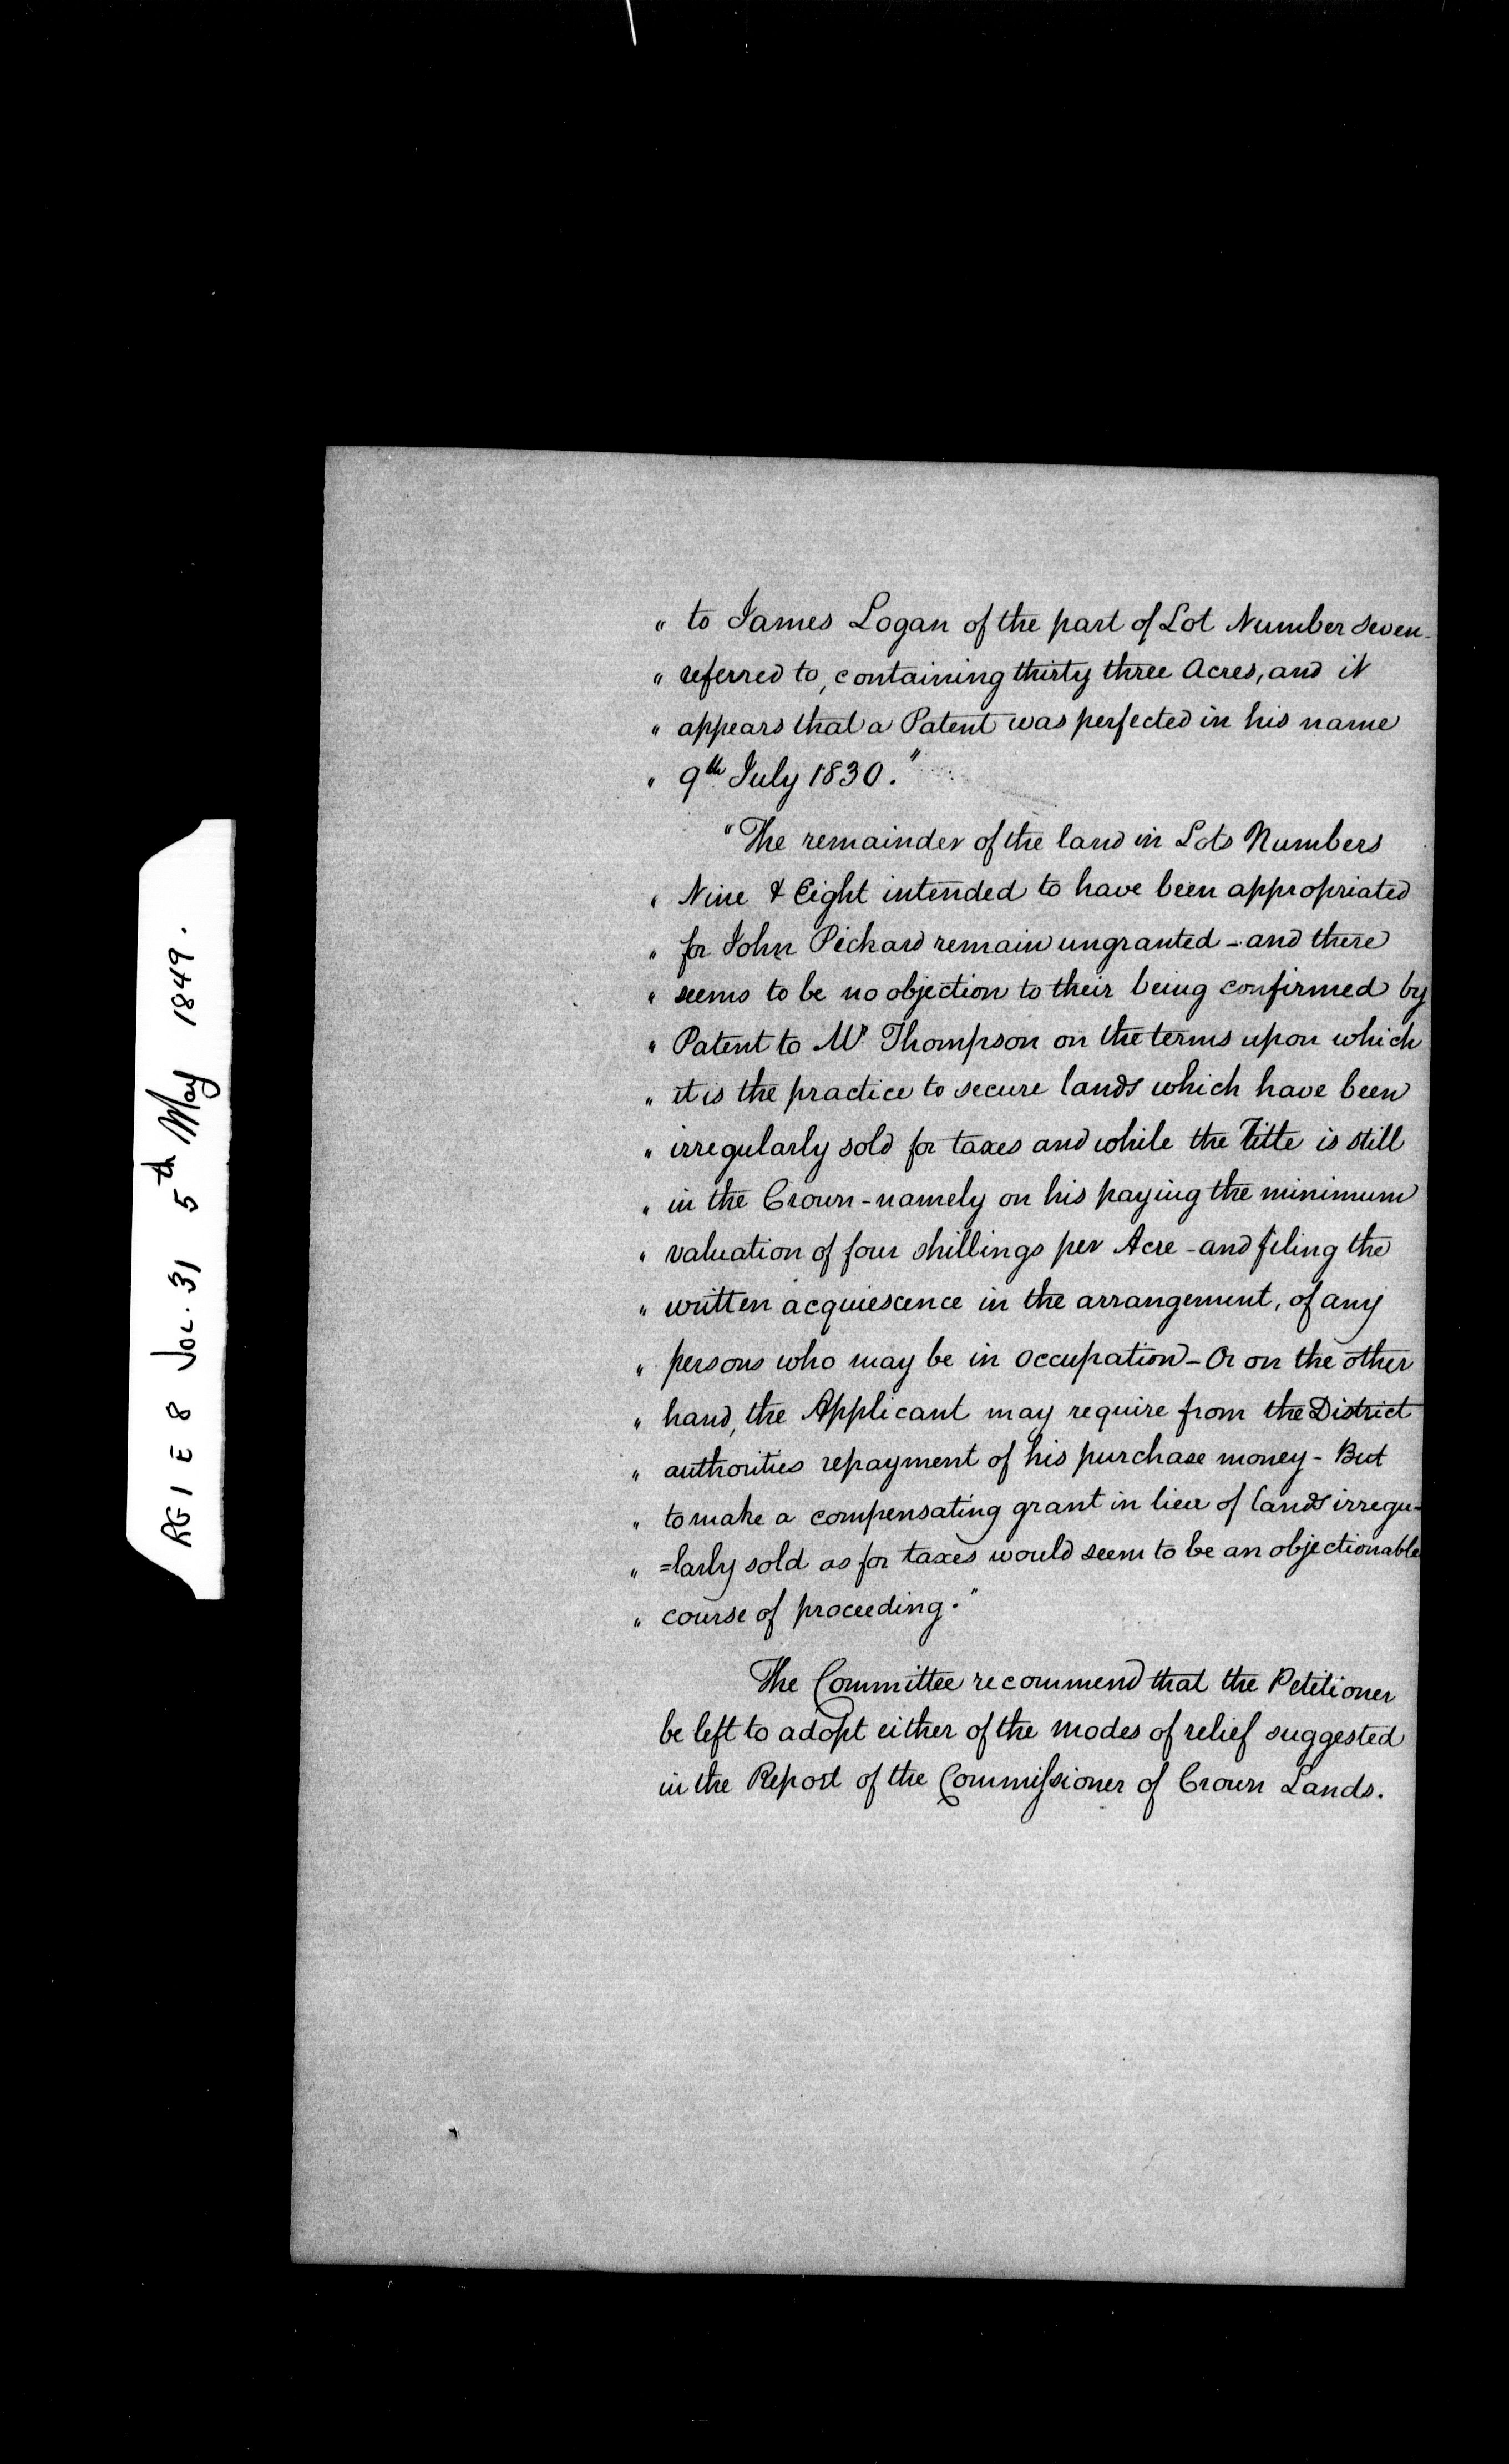 RG 1 E 8 Vol. 31 5th May 1849.
" to James Logan of the part of Lot Number seven-
" referred to, containing thirty three Acres, and it
" appears that a Patent was perfected in his name
" 9th July 1830."
"The remainder of the land in Lots Numbers
" Nine & Eight intended to have been appropriated
" for John Pickard remain ungranted - and there
" seems to be no objection to their being confirmed by
" Patent to Mr Thompson on the terms upon which
" it is the practice to secure lands which have been
" irregularly sold for taxes and while the Title is still
" in the Crown - namely on his paying the minimum
" valuation of four shillings per Acre - and filing the
" written acquiescence in the arrangement, of any
" persons who may be in occupation - Or on the other
" hand, the Applicant may require from the District
" authorities repayment of his purchase money - But
" to make a compensating grant in lieu of lands irregu-
" =larly sold as for taxes would seem to be an objectionable
" course of proceeding."
The Committee recommend that the Petitioner
be left to adopt either of the modes of relief suggested
in the Report of the Commissioner of Crown Lands.